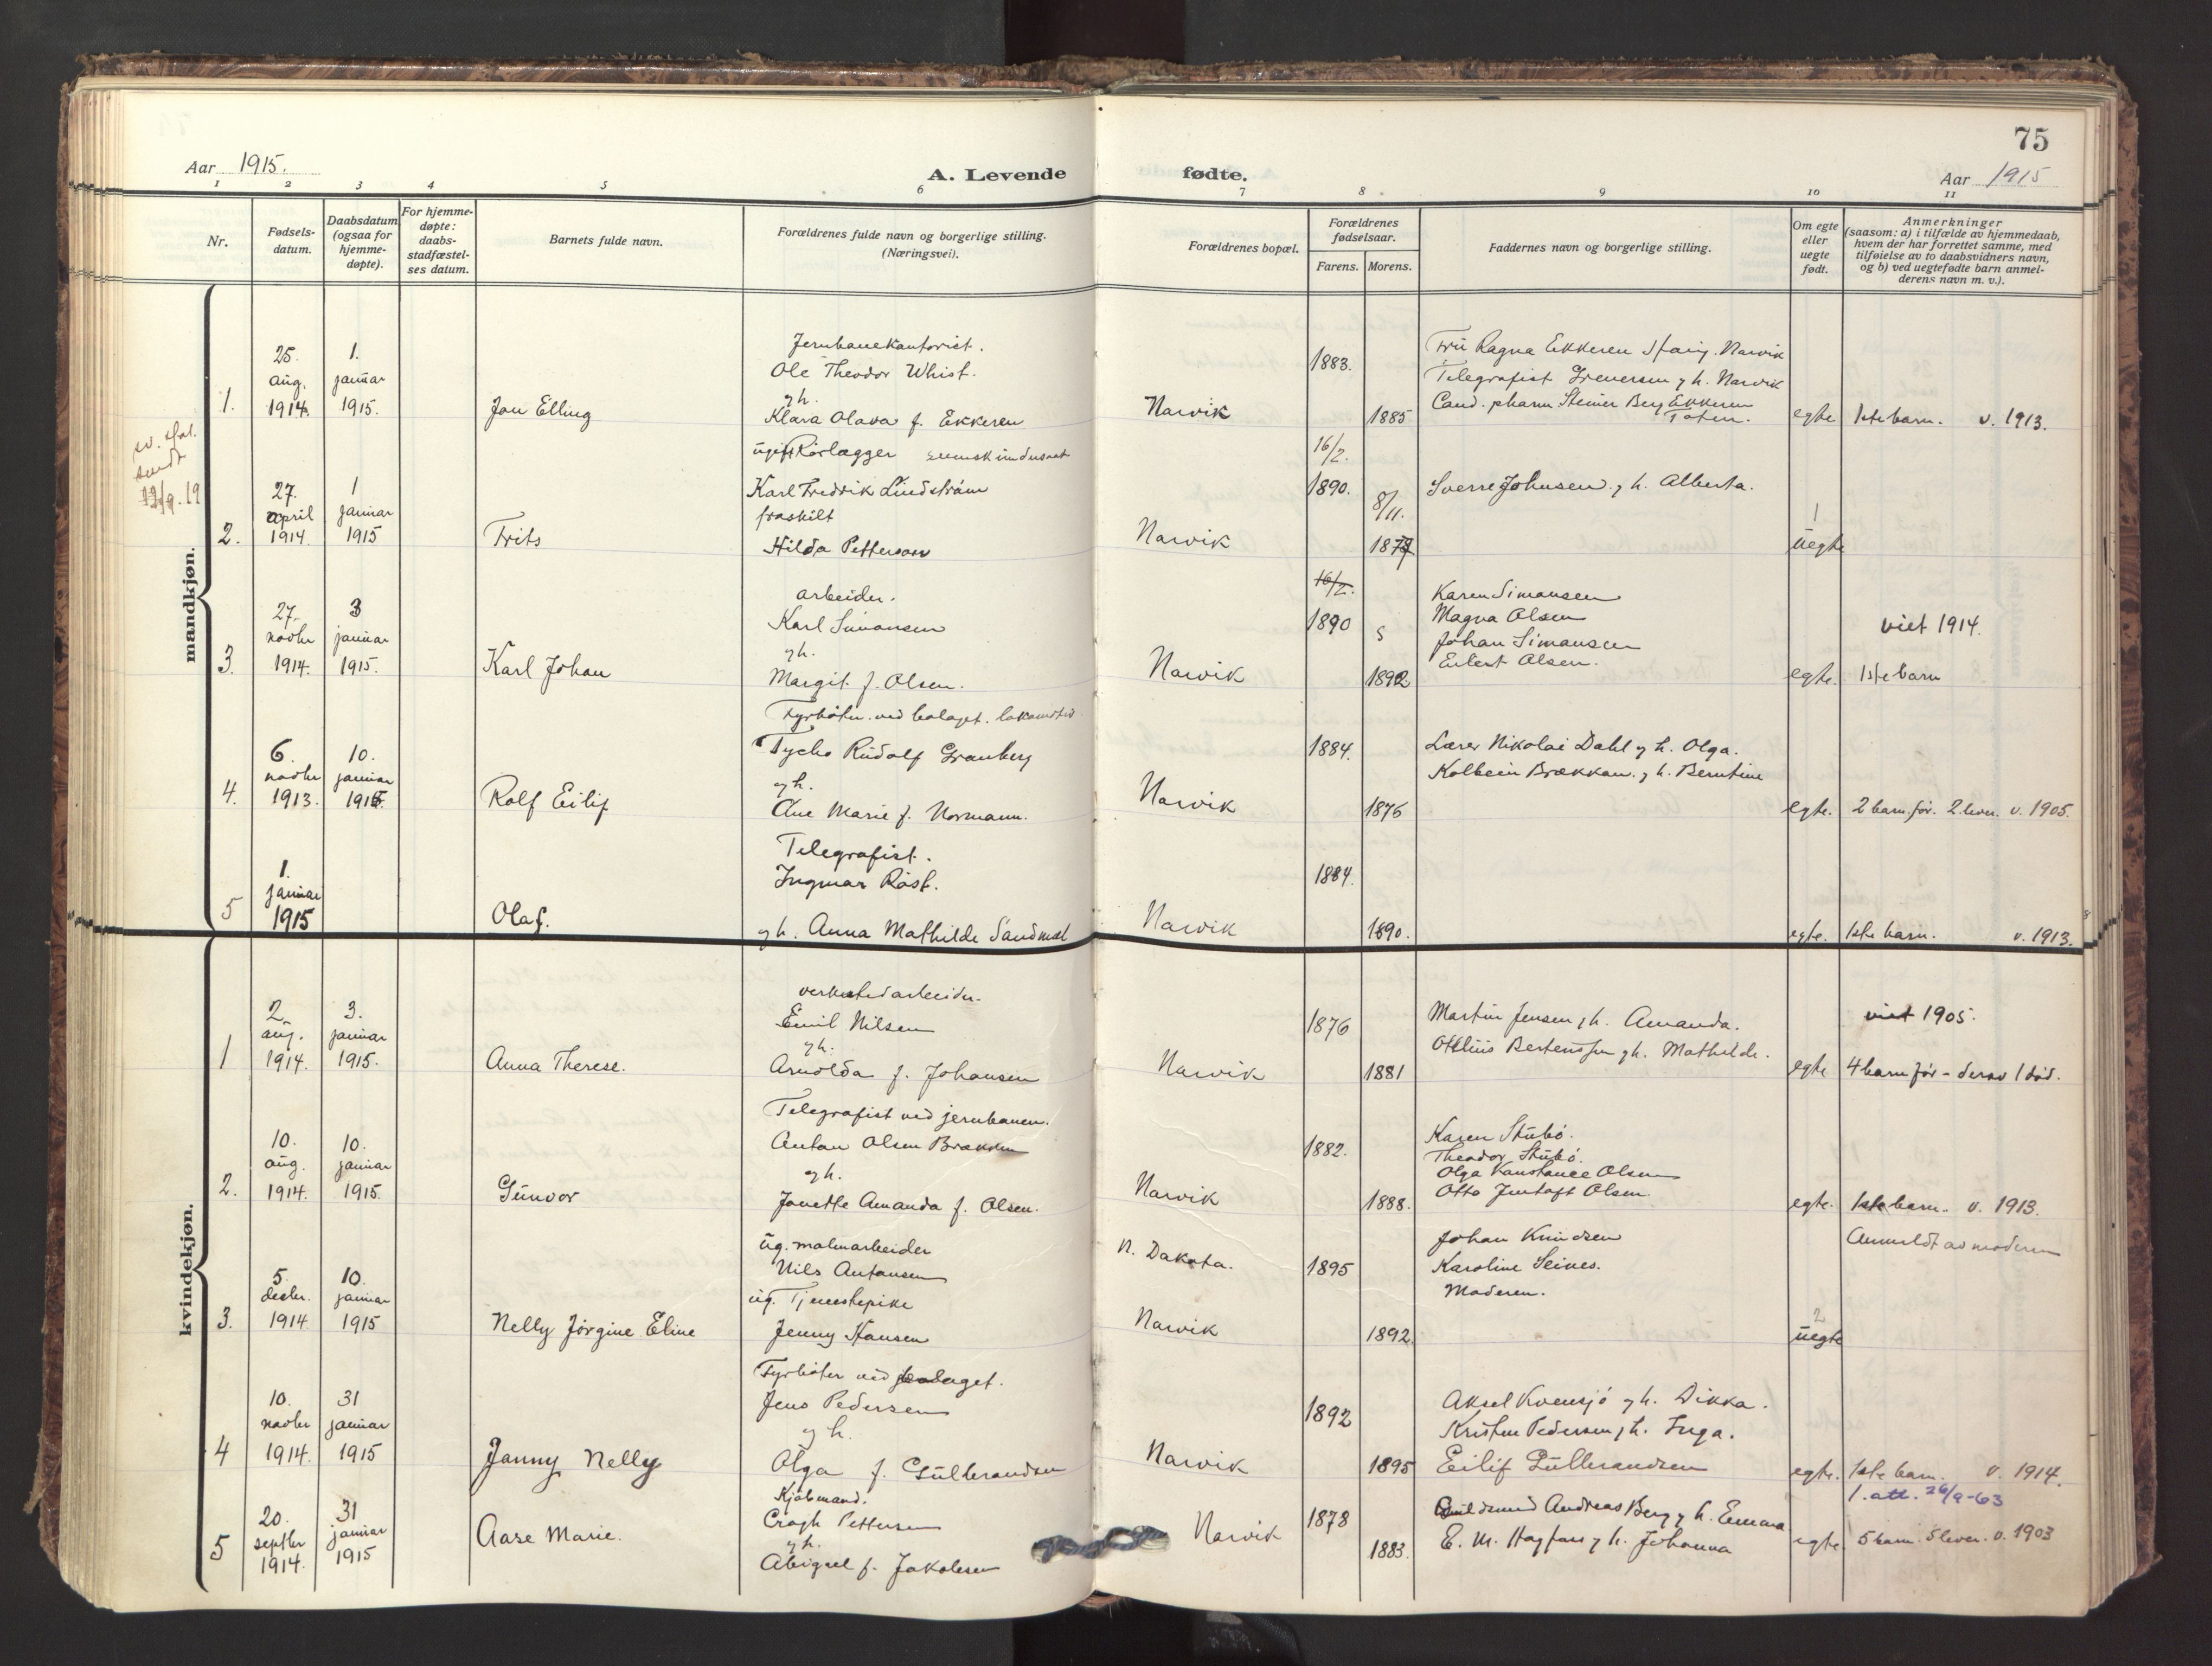 75
Aar 1915.
A. Levende fødte.
Aar 1915
1 2 3 4 5 6 7 8 9 10 11
Nr.
Fødsels-
datum.
Daabsdatum
(ogsaa for
hjemme-
døpte).
For hjemme-
døpte:
daabs-
stadfæstel-
ses datum.
Barnets fulde navn.
Forældrenes fulde navn og borgerlige stilling.
(Næringsvei).
Forældrenes bopæl.
Forældrenes
fødselsaar.
Farens. Morens.
Faddernes navn og borgerlige stilling.
Om egte
eller
uegte
født.
Anmerkninger
(saasom: a) i tilfælde av hjemmedaab,
hvem der har forrettet samme, med
tilføielse av to daabsvidners navn,
og b) ved uegtefødte barn anmel-
derens navn m. v.).
mandkjøn.
1.
25.
aug.
1914.
1.
januar
1915.
Jan Elling
Jernbanekontorist.
Ole Theodor Whist.
g h.
Klara Olava f. Ekkeren
Narvik
1883.
1885
Fru Ragna Ekkeren Narvik
Telegrafist g h. Narvik
Cand. pharm Steiner Berg Ekkeren
Toten.
egte
1ste barn. v. 1913.
sendt
19/9.19
2.
27.
april
1914.
1
januar
1915
Frits
ugift Rörlægger svensk undersaat
Karl Fredrik Lindström
fraskilt
Hilda Petterson
Narvik
16/2.
1890.
8/11.
Sverre Johnsen g h. Alberta.
1
uegte
3.
27.
novbr
1914.
3
januar
1915.
Karl Johan
arbeider.
Karl Simonsen
g h.
Margit f. Olsen.
Narvik
16/2.
1890
1892
Karen Simonsen
Magna Olsen
Johan Simonsen
Eilert Olsen.
egte.
viet 1914.
1ste barn
4.
6.
novbr
1913.
10.
januar
1915.
Rolf Eilif
Fyrböter ved bolaget. lokomotiv
Tycho Rudolf Granberg
g h.
Ane Marie f. Normann.
Narvik
1884.
1876
Lærer Nikolai Dahl g h. Olga.
Kolbein Brækkan. g h. Berntine
egte.
2 barn för. 2 lever. v. 1905.
5
1.
januar
1915
Olaf.
Telegrafist.
Ingmar Röst.
g h. Anna Mathilde Sandmæl
Narvik
1884.
1890.
egte.
1ste barn. v. 1913.
kvindekjøn.
1
2
aug.
1914.
3.
januar
1915.
Anna Therese.
verkstedarbeider.
Emil Nilsen
g h.
Arnolda f. Johansen
Narvik
1876
1881
Martin Jensen g h. Amanda.
Otelius Bertenssen g h. Mathilde.
egte
viet 1905.
4 barn för - derav 1 död.
2.
10.
aug.
1914.
10.
januar
1915.
Gunvor
Telegrafist ved jernbanen.
Anton Olsen Brækken
g h.
Janette Amanda f. Olsen.
Narvik
1882.
1888.
Karen Stubö.
Theodor Stubö.
Olga Konstance Olsen
Otto Jentoft Olsen.
egte.
1ste barn. v. 1913.
3.
5
decbr.
1914
10.
januar
1915
Nelly Jörgine Eline
ug. malmarbeider
Nils Antonsen
ug. Tjenestepike
Jenny Hansen
N. Dakota.
Narvik
1895
1892.
Johan Knudsen
Karoline Seines.
Moderen.
2
uegte
Anmeldt av moderen
4
10.
novbr
1914.
31
januar
1915
Janny Nelly
Fyrböter ved bolaget.
Jens Pedersen
g h.
Olga f. Gulbrandsen
Narvik
1892
1895
Aksel Kvensjö g h. Dikka.
Kristen Pedersen g h. Inga.
Eilif Gulbrandsen
egte.
1ste barn. v. 1914.
1. att. 26/9-63
5
20.
septbr
1914.
31
januar
1915
Aase Marie.
Kjöbmand.
Cragh Pettersen
g h.
Abigael f. Jakobsen
Narvik
1878
1883.
Guldsmed Andreas Berg g h. Emma
E. M. Hagfors g h. Johanna
egte
5 barn. 5 lever. v. 1903